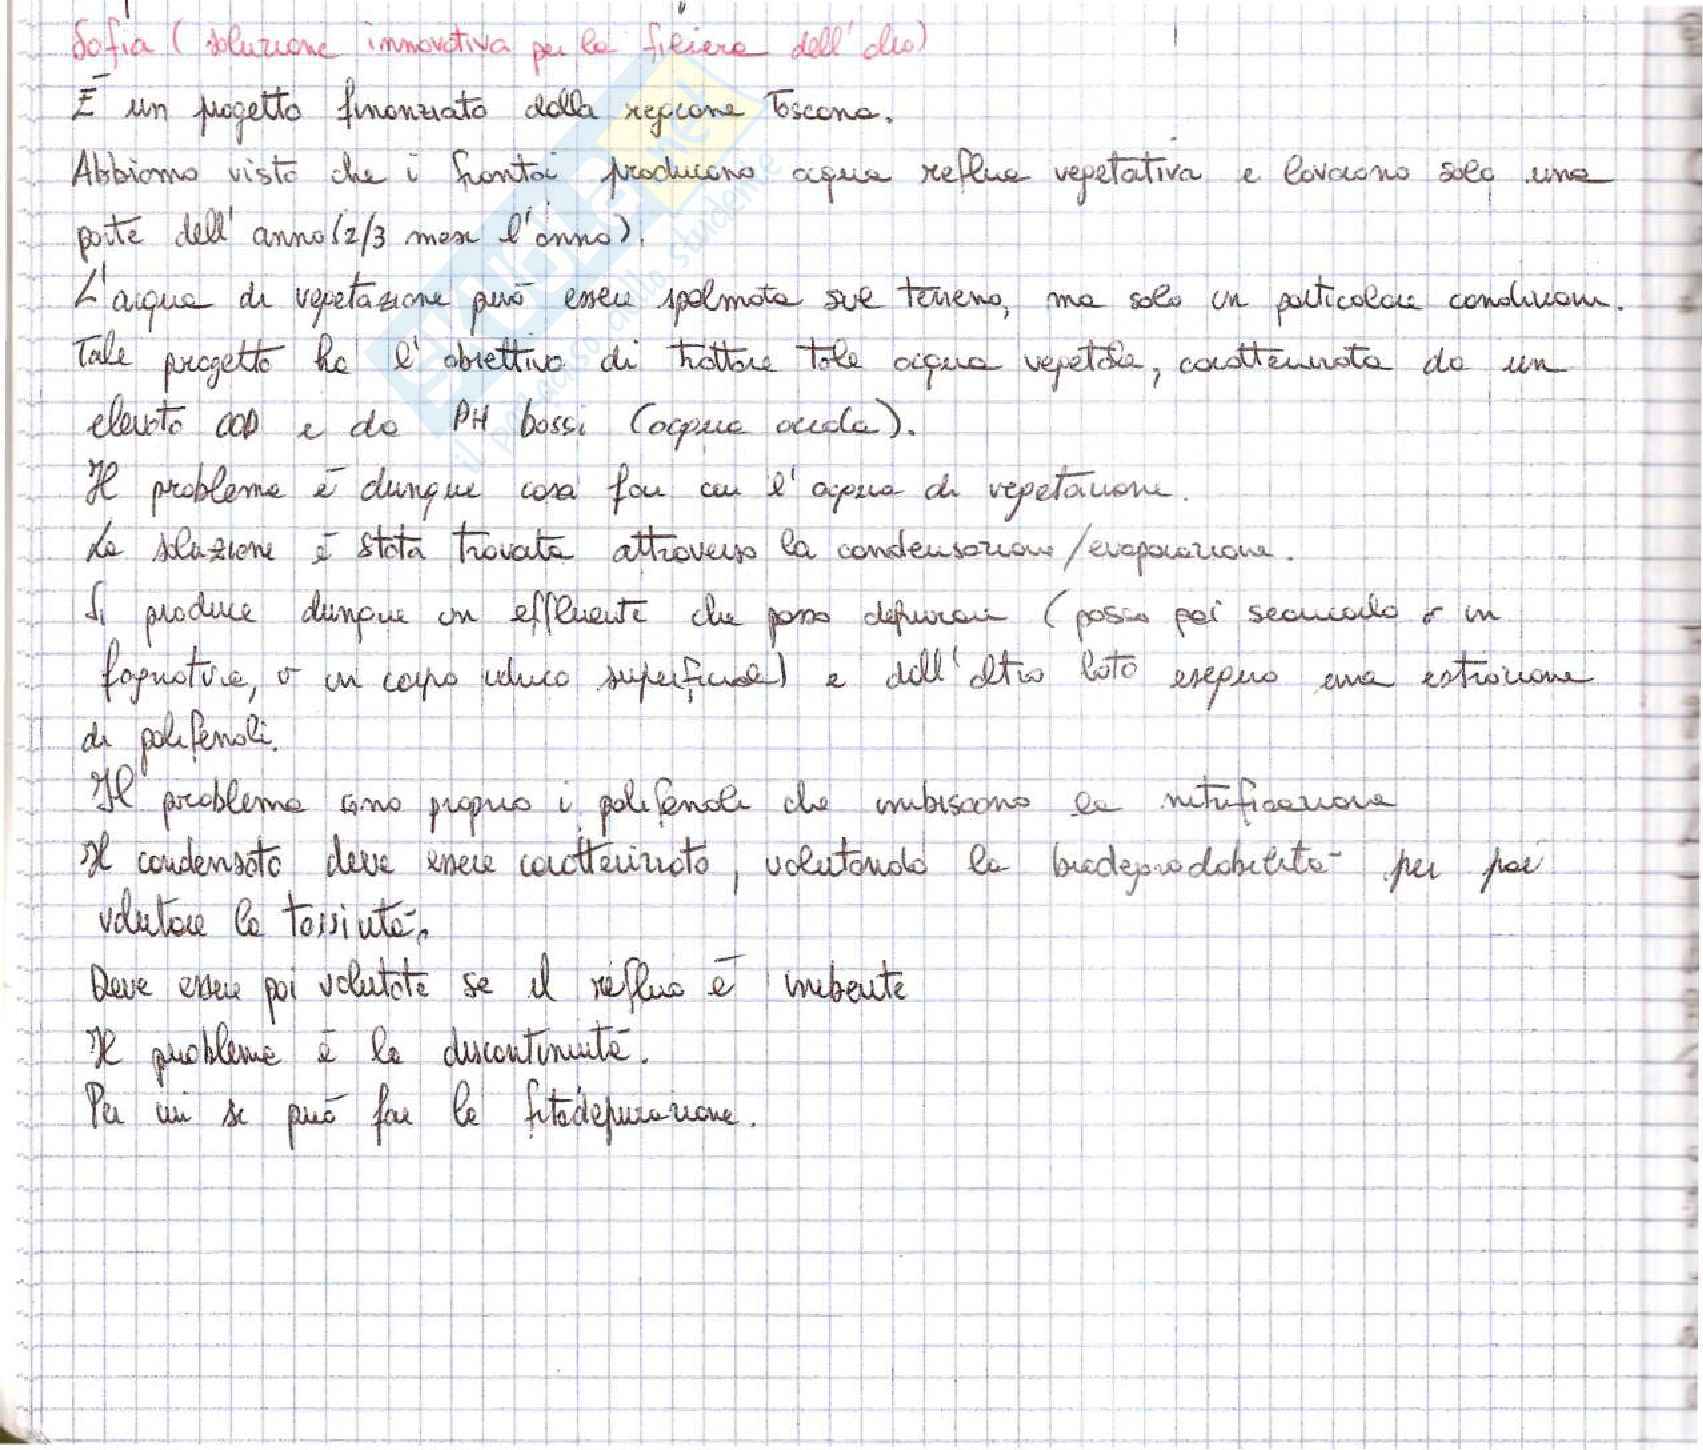 Sofia (soluzione innovativa per la filiera dell'olio)
È un progetto finanziato dalla regione Toscana.
Abbiamo visto che i frantoi producono acqua reflua vegetativa e lavorano solo una
parte dell'anno (2/3 mesi l'anno).
L'acqua di vegetazione può essere spalmata sul terreno, ma solo in particolari condizioni.
Tale progetto ha l'obiettivo di trattare tale acqua vegetale, caratterizzata da un
elevato COD e da PH bassi (acqua acida).
Il problema è dunque cosa fare con l'acqua di vegetazione.
La soluzione è stata trovata attraverso la condensazione/evaporazione.
Si produce dunque un effluente che posso depurare (posso poi scaricarlo o in
fognatura, o in corpo idrico superficiale) e dall'altro lato eseguo una estrazione
di polifenoli.
Il problema sono proprio i polifenoli che inibiscono la nitrificazione
Il condensato deve essere caratterizzato, valutando la biodegradabilità per poi
valutare la tossicità.
Deve essere poi valutato se il refluo è inibente
Il problema è la discontinuità.
Per cui si può fare la fitodepurazione.
SKUOLA.net
il paradiso dello studente